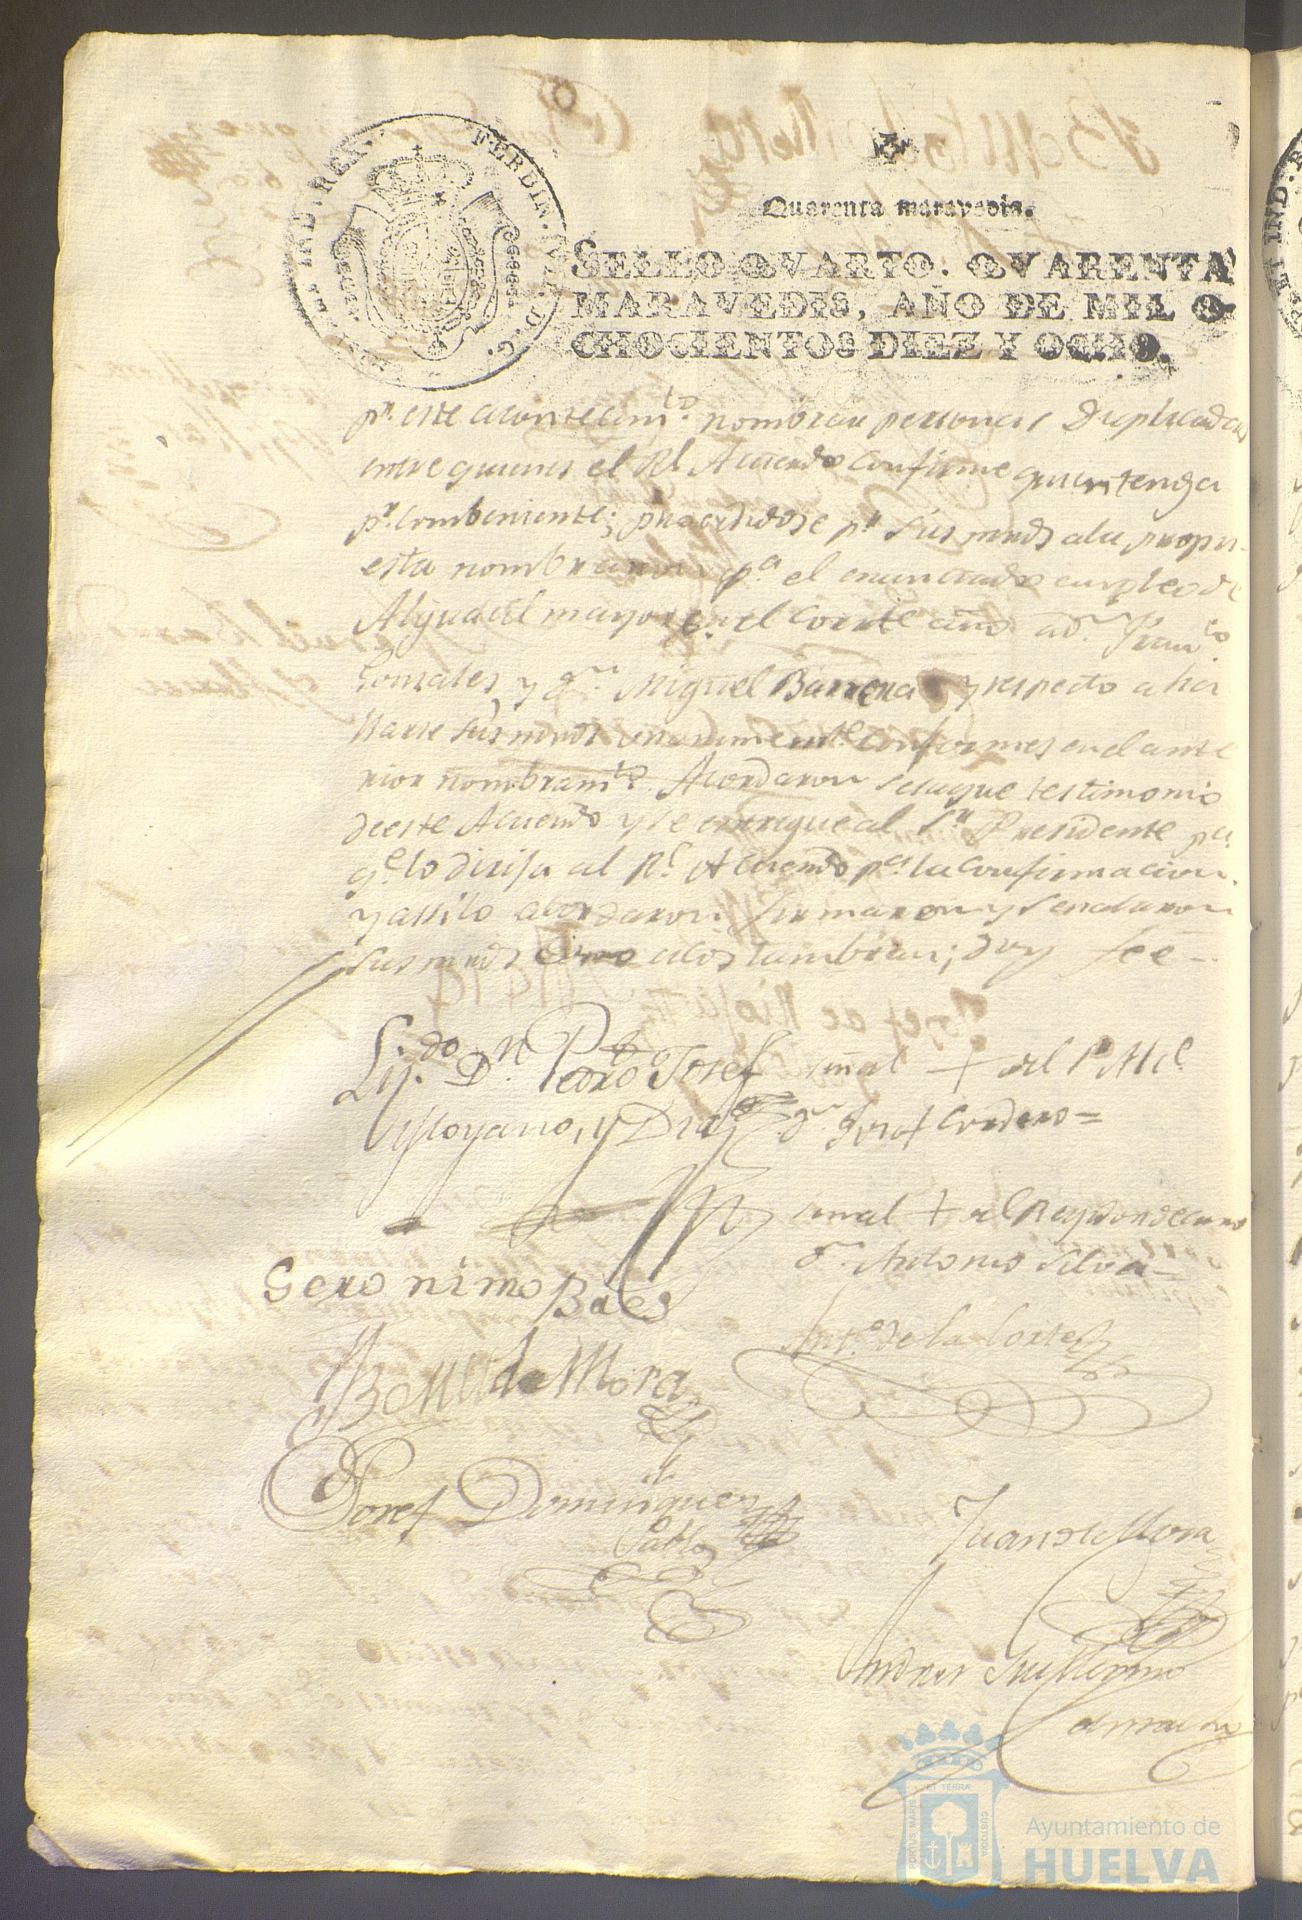 HISP. ET IND. REX.
FERDIN. VII. D. G.
Quarenta maravedis.
SELLO QVARTO. QVARENTA
MARAVEDIS, AÑO DE MIL O-
CHOCIENTOS DIEZ Y OCHO.
pr. este acontecimto. nombrar personas Duplicadas
entre quienes el Rl Acuerdo confirme quien tenga
pr. combeniente; procediose pr sus mrds ala propu-
esta nombraron pa el enunciado empleo de
Alguacil mayor en el corrte año a Dn Franco
Gonsales y Dn Miguel Barrera y respecto a ha
llarse sus mrds unanimemte. conformes en el ante
rior nombramto. Acordaron se saque testimonio
de este Acuerdo y se entregue al Sr Presidente pa
qe lo dirija al Rl Acuerdo pa la confirmacion.
y assi lo acordaron, firmaron y señalaron
sus mrds como acostumbran; doy fee -
Lizdo. Dn Pedro Josef
Moyano, y Diaz
señal + del Sr Alce
Dn Josef Cordero =
señal + del Regidor decano
Dn Antonio Silva -
Geronimo Baes
Anto. de la Corte
Benito de Mora
Josef Dominguez
Pablo
Juan de Mora
Andres Guillermo
Camacho
PORTUS MARIS
ET TERRÆ
CUSTODIA
Ayuntamiento de
HUELVA